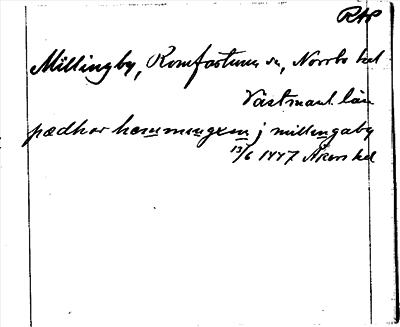 RAP
Millingby, Romfartuna sn, Norrbo hd
Västmanl. län
pædhar hemmingxsu j millingaby
13/6 1447 Åkers hd